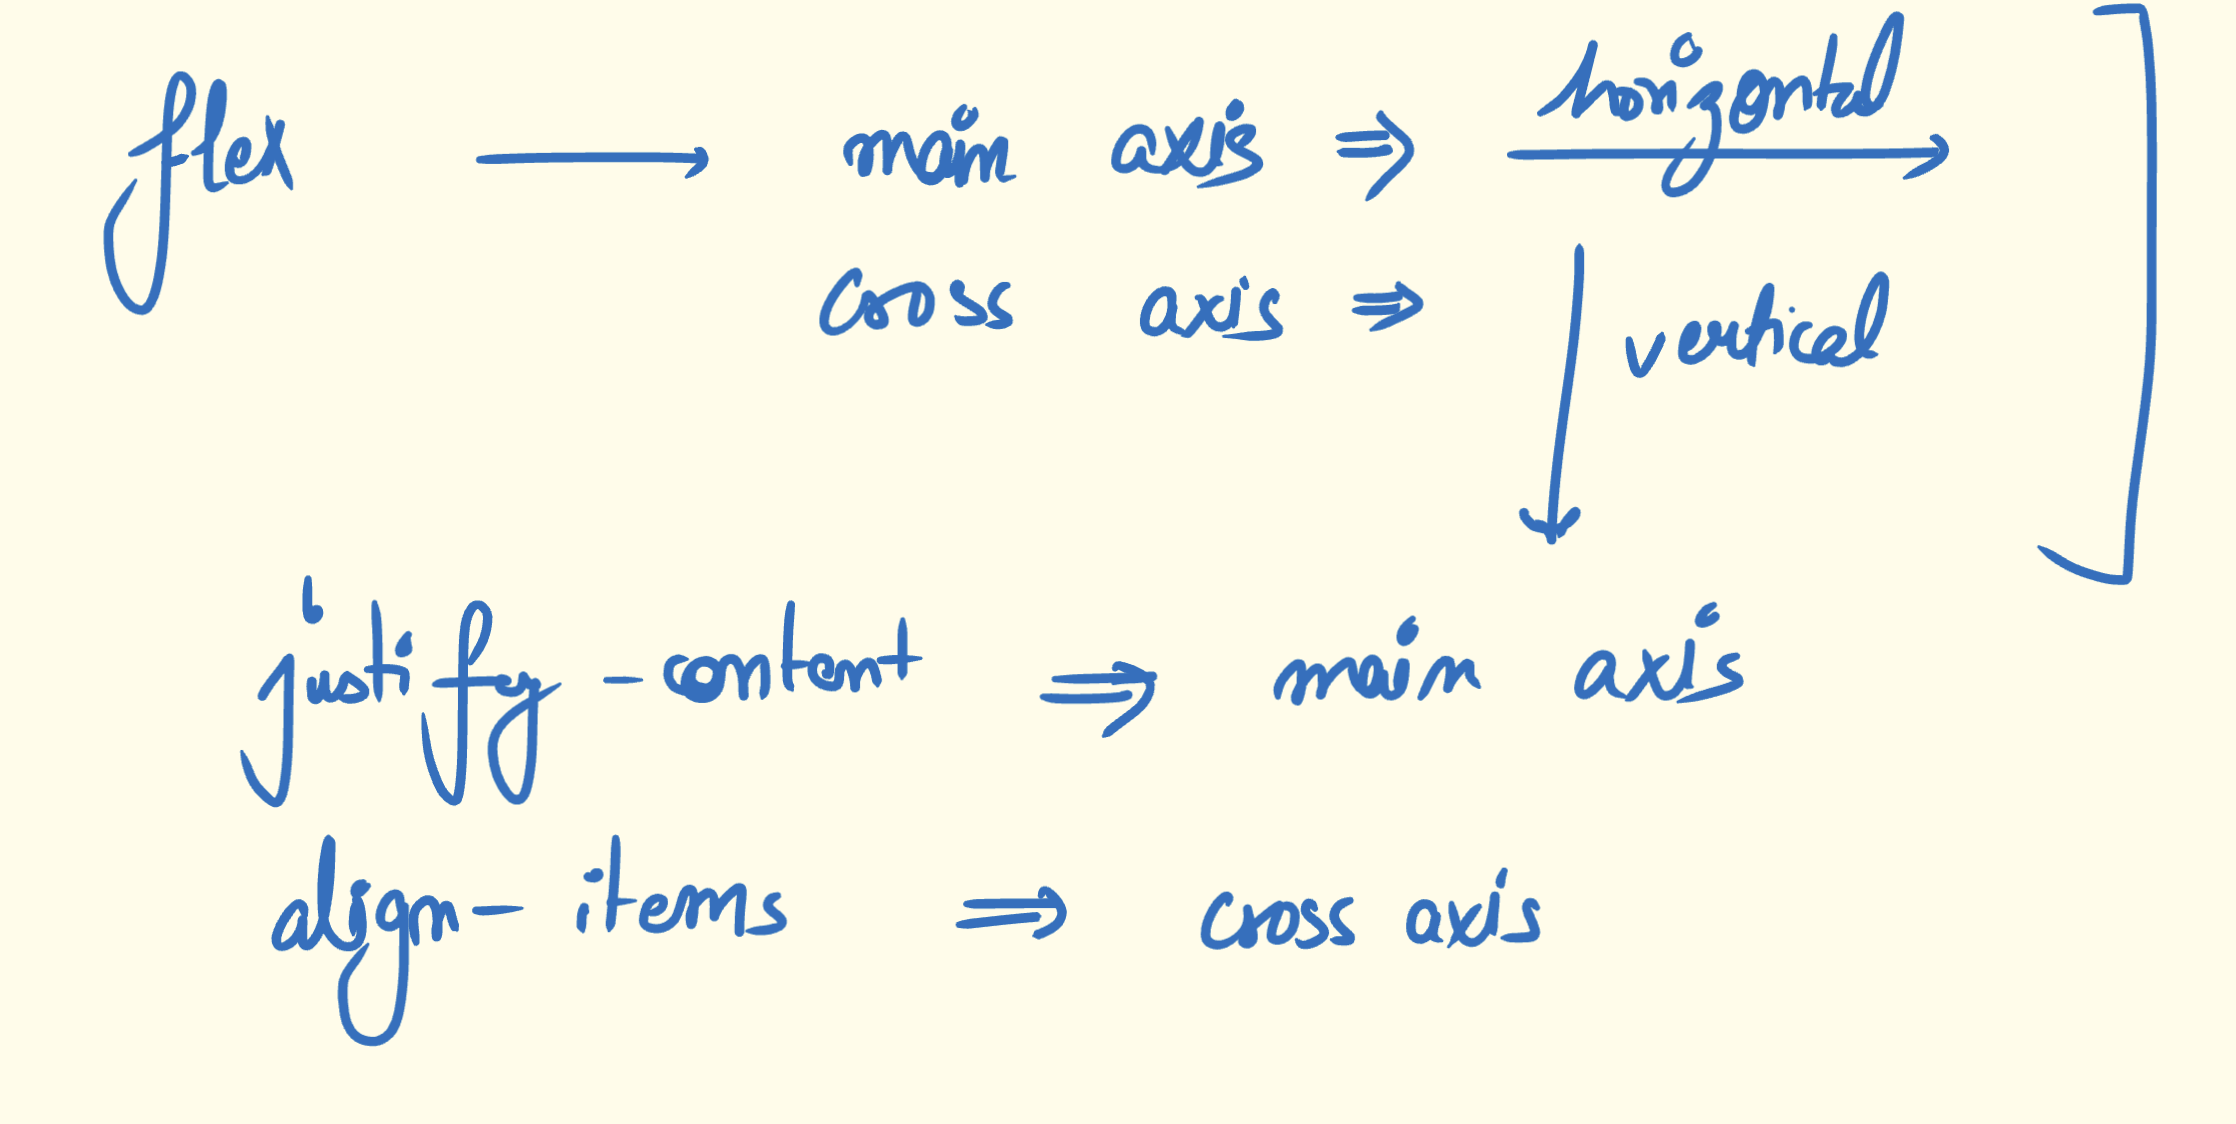 flex → main axis ⇒ horizontal
cross axis ⇒ vertical
justify-content ⇒ main axis
align-items ⇒ cross axis